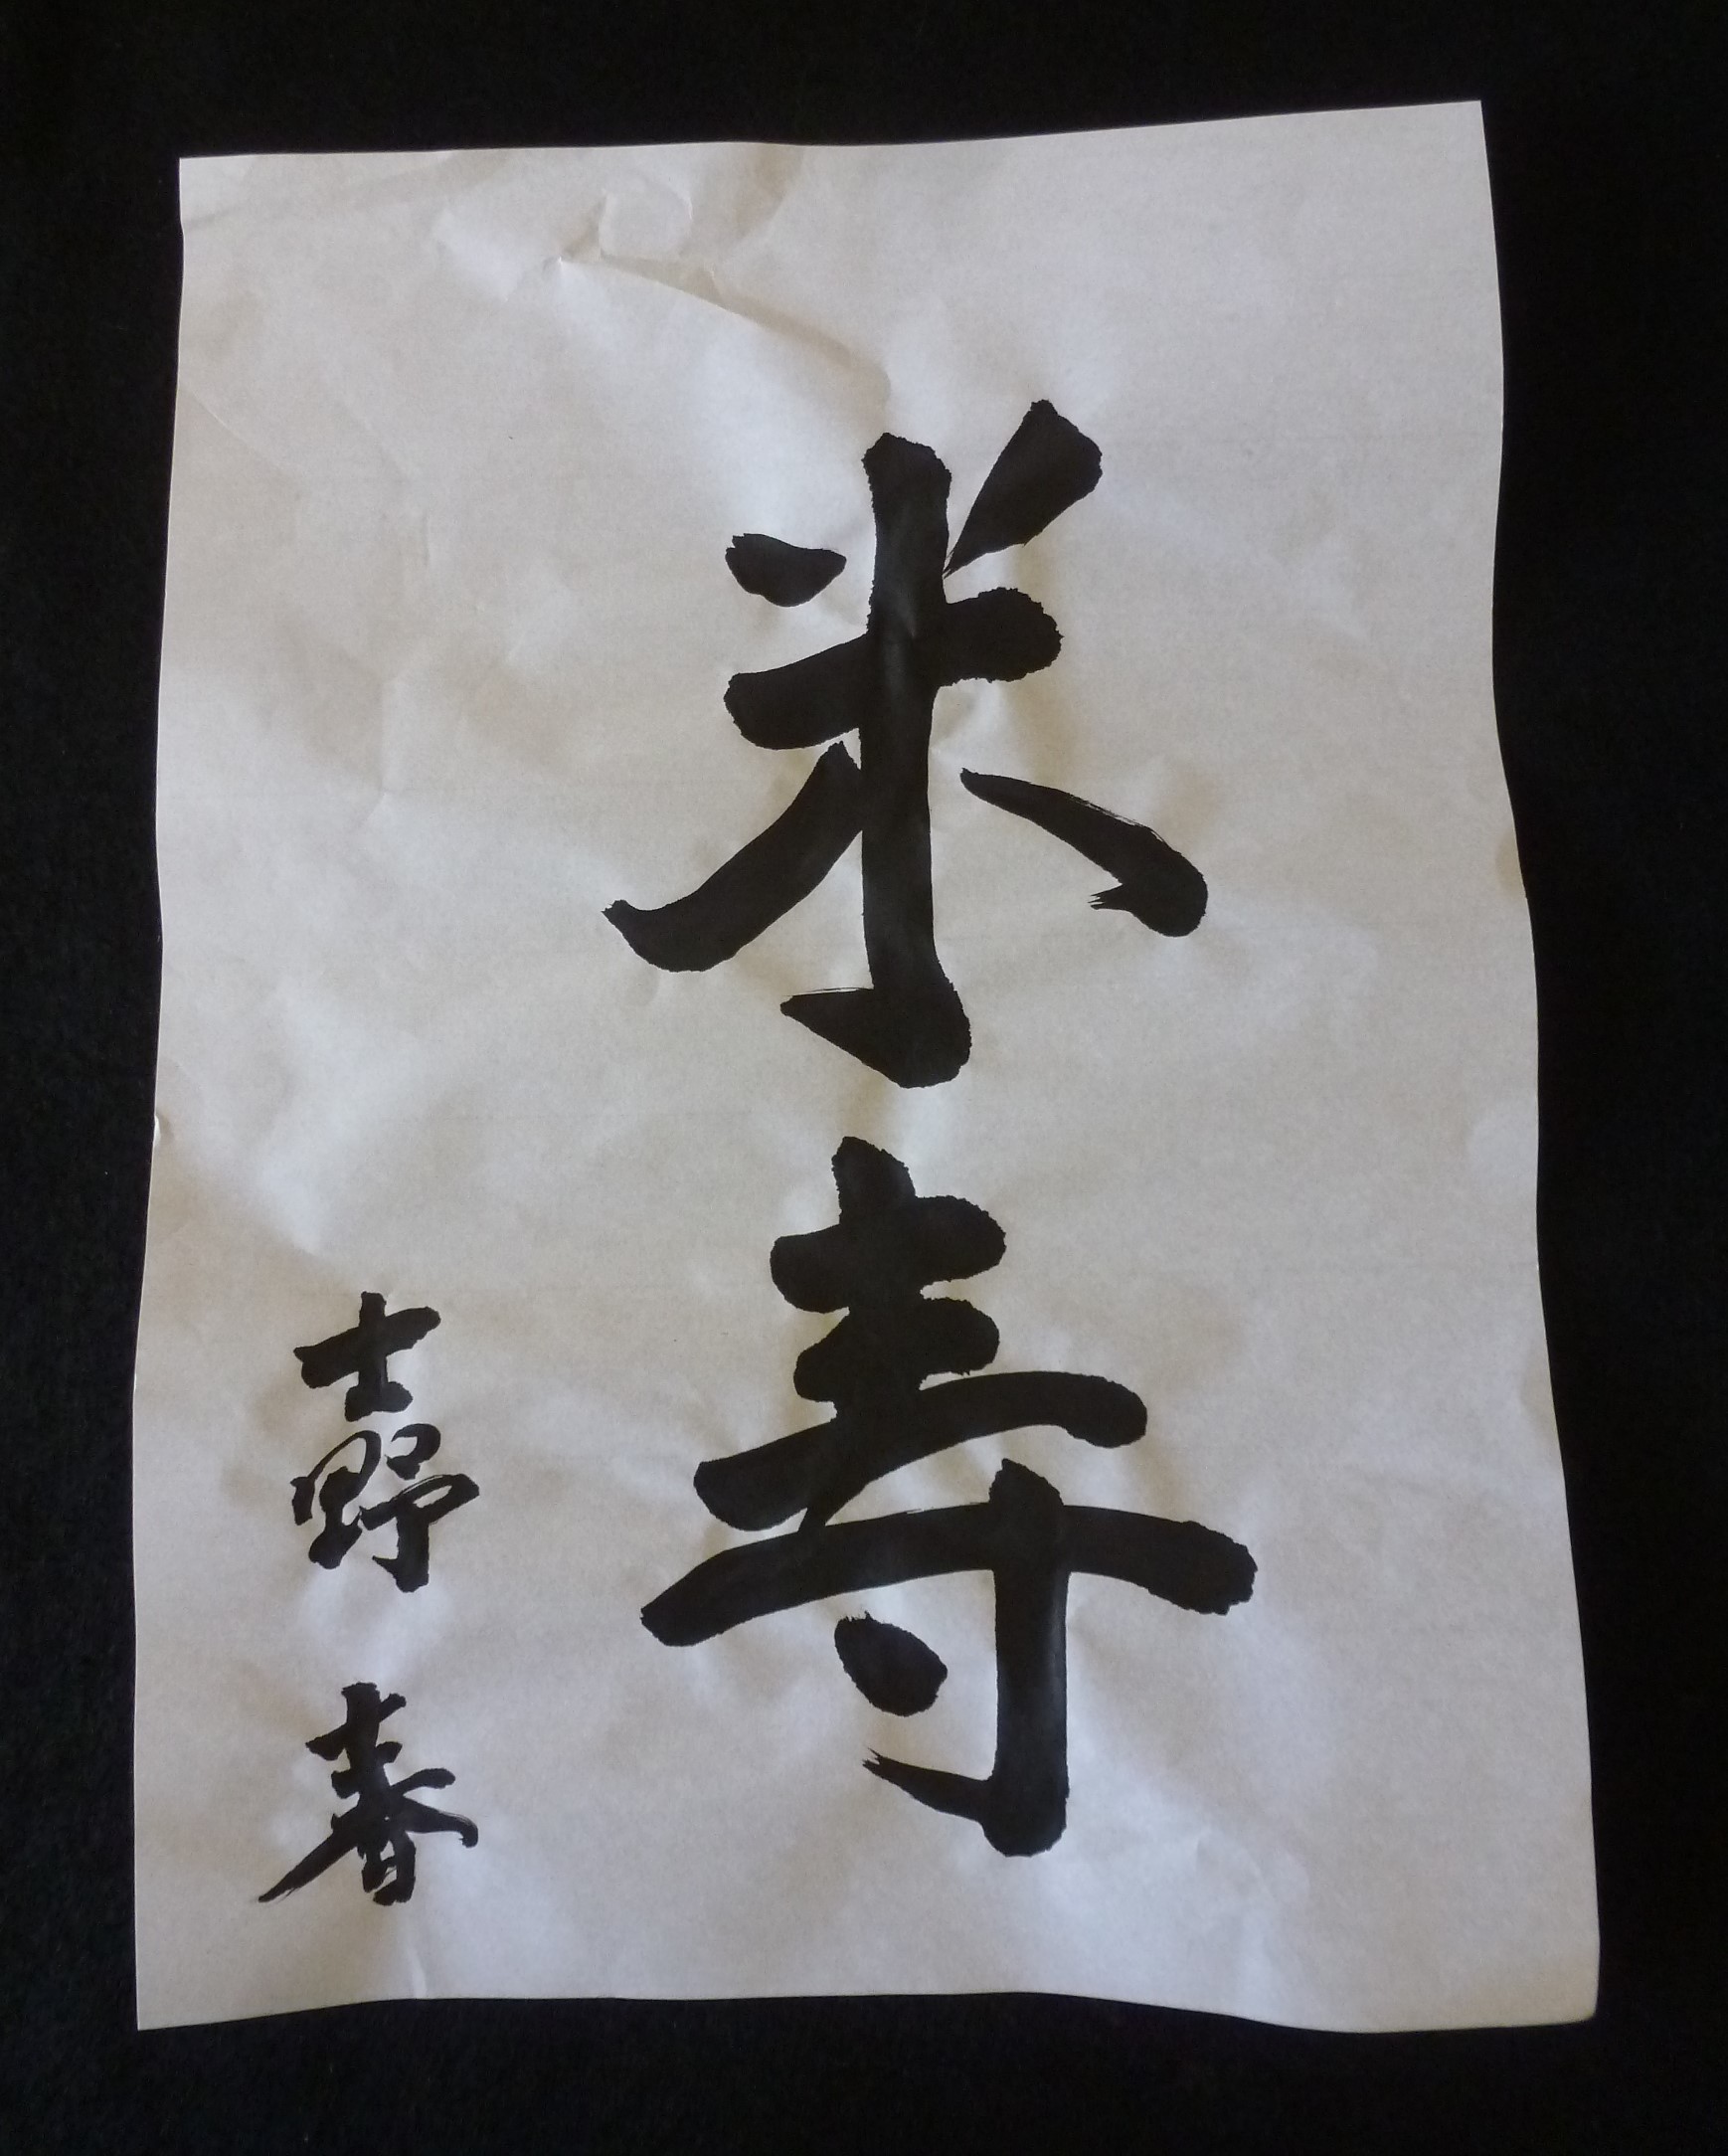 米寿
士野 春